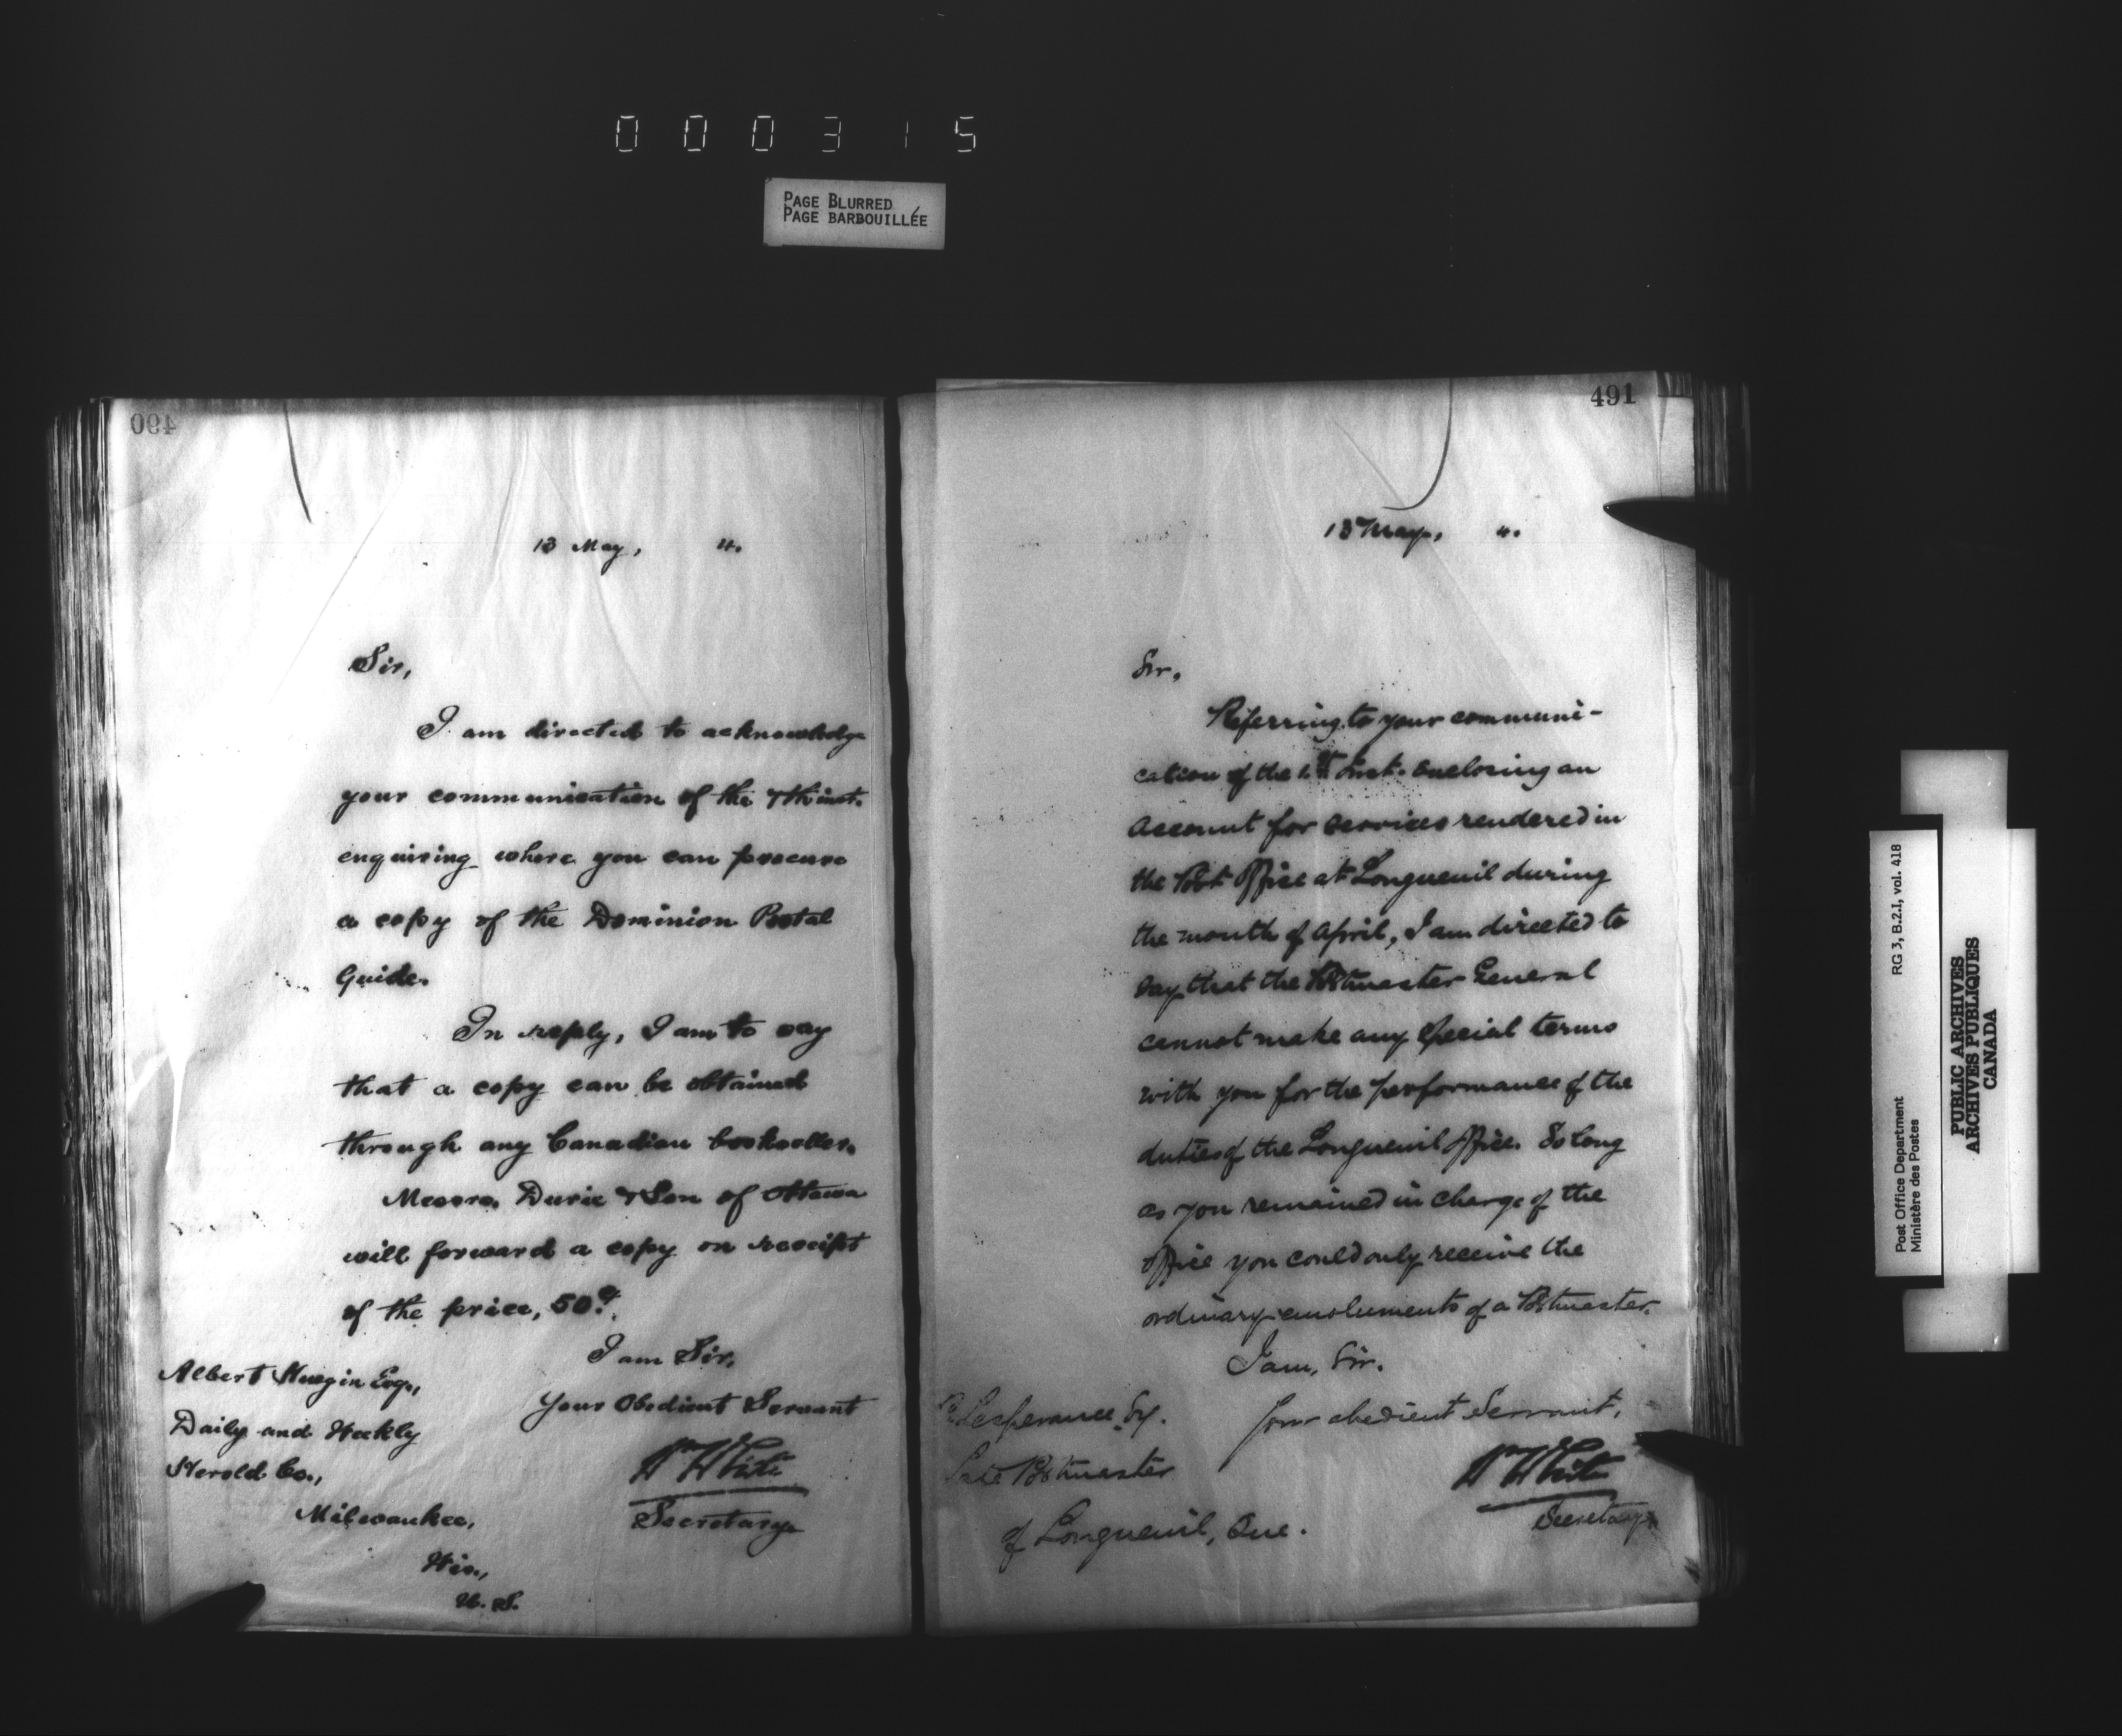 000315
PAGE BLURRED
PAGE BARBOUILLÉE
490
13 May, 4.
Sir,
I am directed to acknowledge
your communication of the 7th inst.
enquiring where you can procure
a copy of the Dominion Postal
Guide.
In reply, I am to say
that a copy can be obtained
through any Canadian bookseller.
Messrs. Durie & Son of Ottawa
will forward a copy on receipt
of the price, 50c.
I am Sir,
Your Obedient Servant
Wm White
Secretary
Albert Huegin Esq.,
Daily and Weekly
Herold Co.,
Milwaukee,
Wis.,
U.S.
491
13 May, 4.
Sir,
Referring to your communi-
cation of the inst. enclosing an
account for services rendered in
the Post Office at Longueuil during
the month of April, I am directed to
say that the Postmaster General
cannot make any special terms
with you for the performance of the
duties of the Longueuil Office. So long
as you remained in charge of the
office you could only receive the
ordinary emoluments of a Postmaster.
I am, Sir.
Your obedient Servant,
Wm White
Secretary
Lesperance Esq.
Late Postmaster
of Longueuil, Que.
Post Office Department RG 3, B.2.I, vol. 418
Ministère des Postes
PUBLIC ARCHIVES
ARCHIVES PUBLIQUES
CANADA